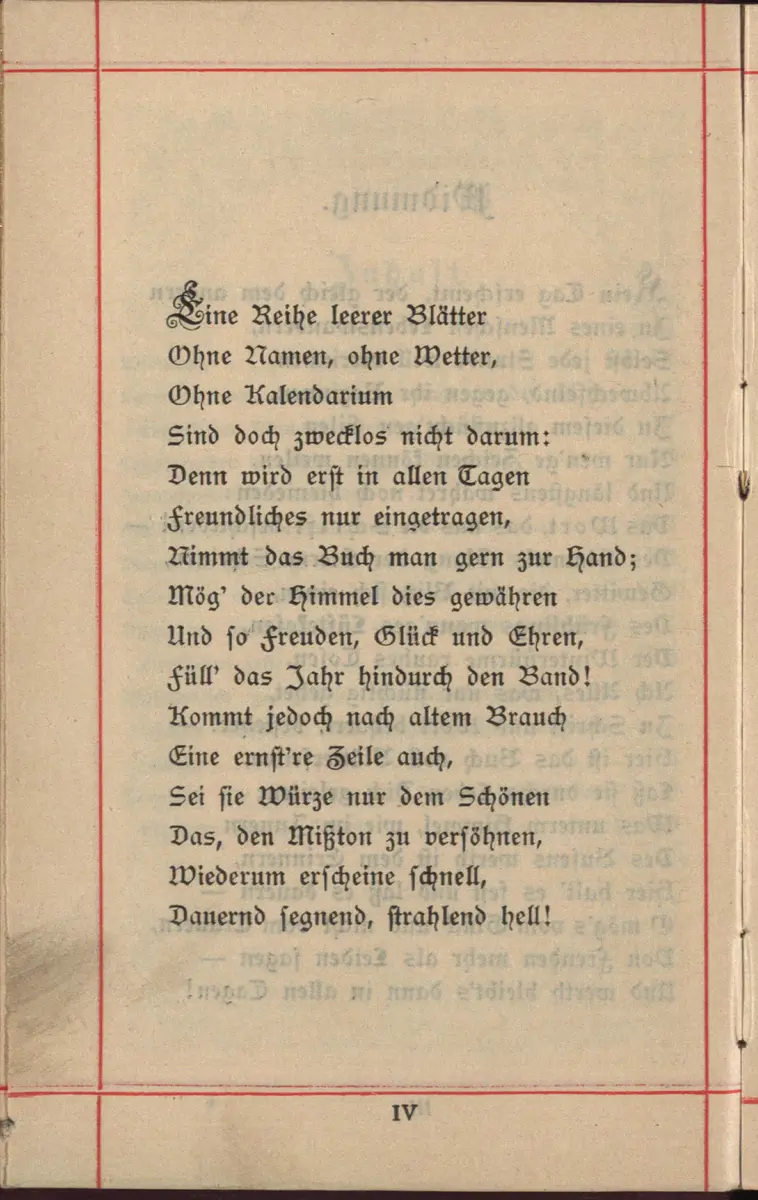 Eine Reihe leerer Blätter
Ohne Namen, ohne Wetter,
Ohne Kalendarium
Sind doch zwecklos nicht darum:
Denn wird erst in allen Tagen
Freundliches nur eingetragen,
Nimmt das Buch man gern zur Hand;
Mög' der Himmel dies gewähren
Und so Freuden, Glück und Ehren,
Füll' das Jahr hindurch den Band!
Kommt jedoch nach altem Brauch
Eine ernst're Zeile auch,
Sei sie Würze nur dem Schönen
Das, den Mißton zu versöhnen,
Wiederum erscheine schnell,
Dauernd segnend, strahlend hell!
IV